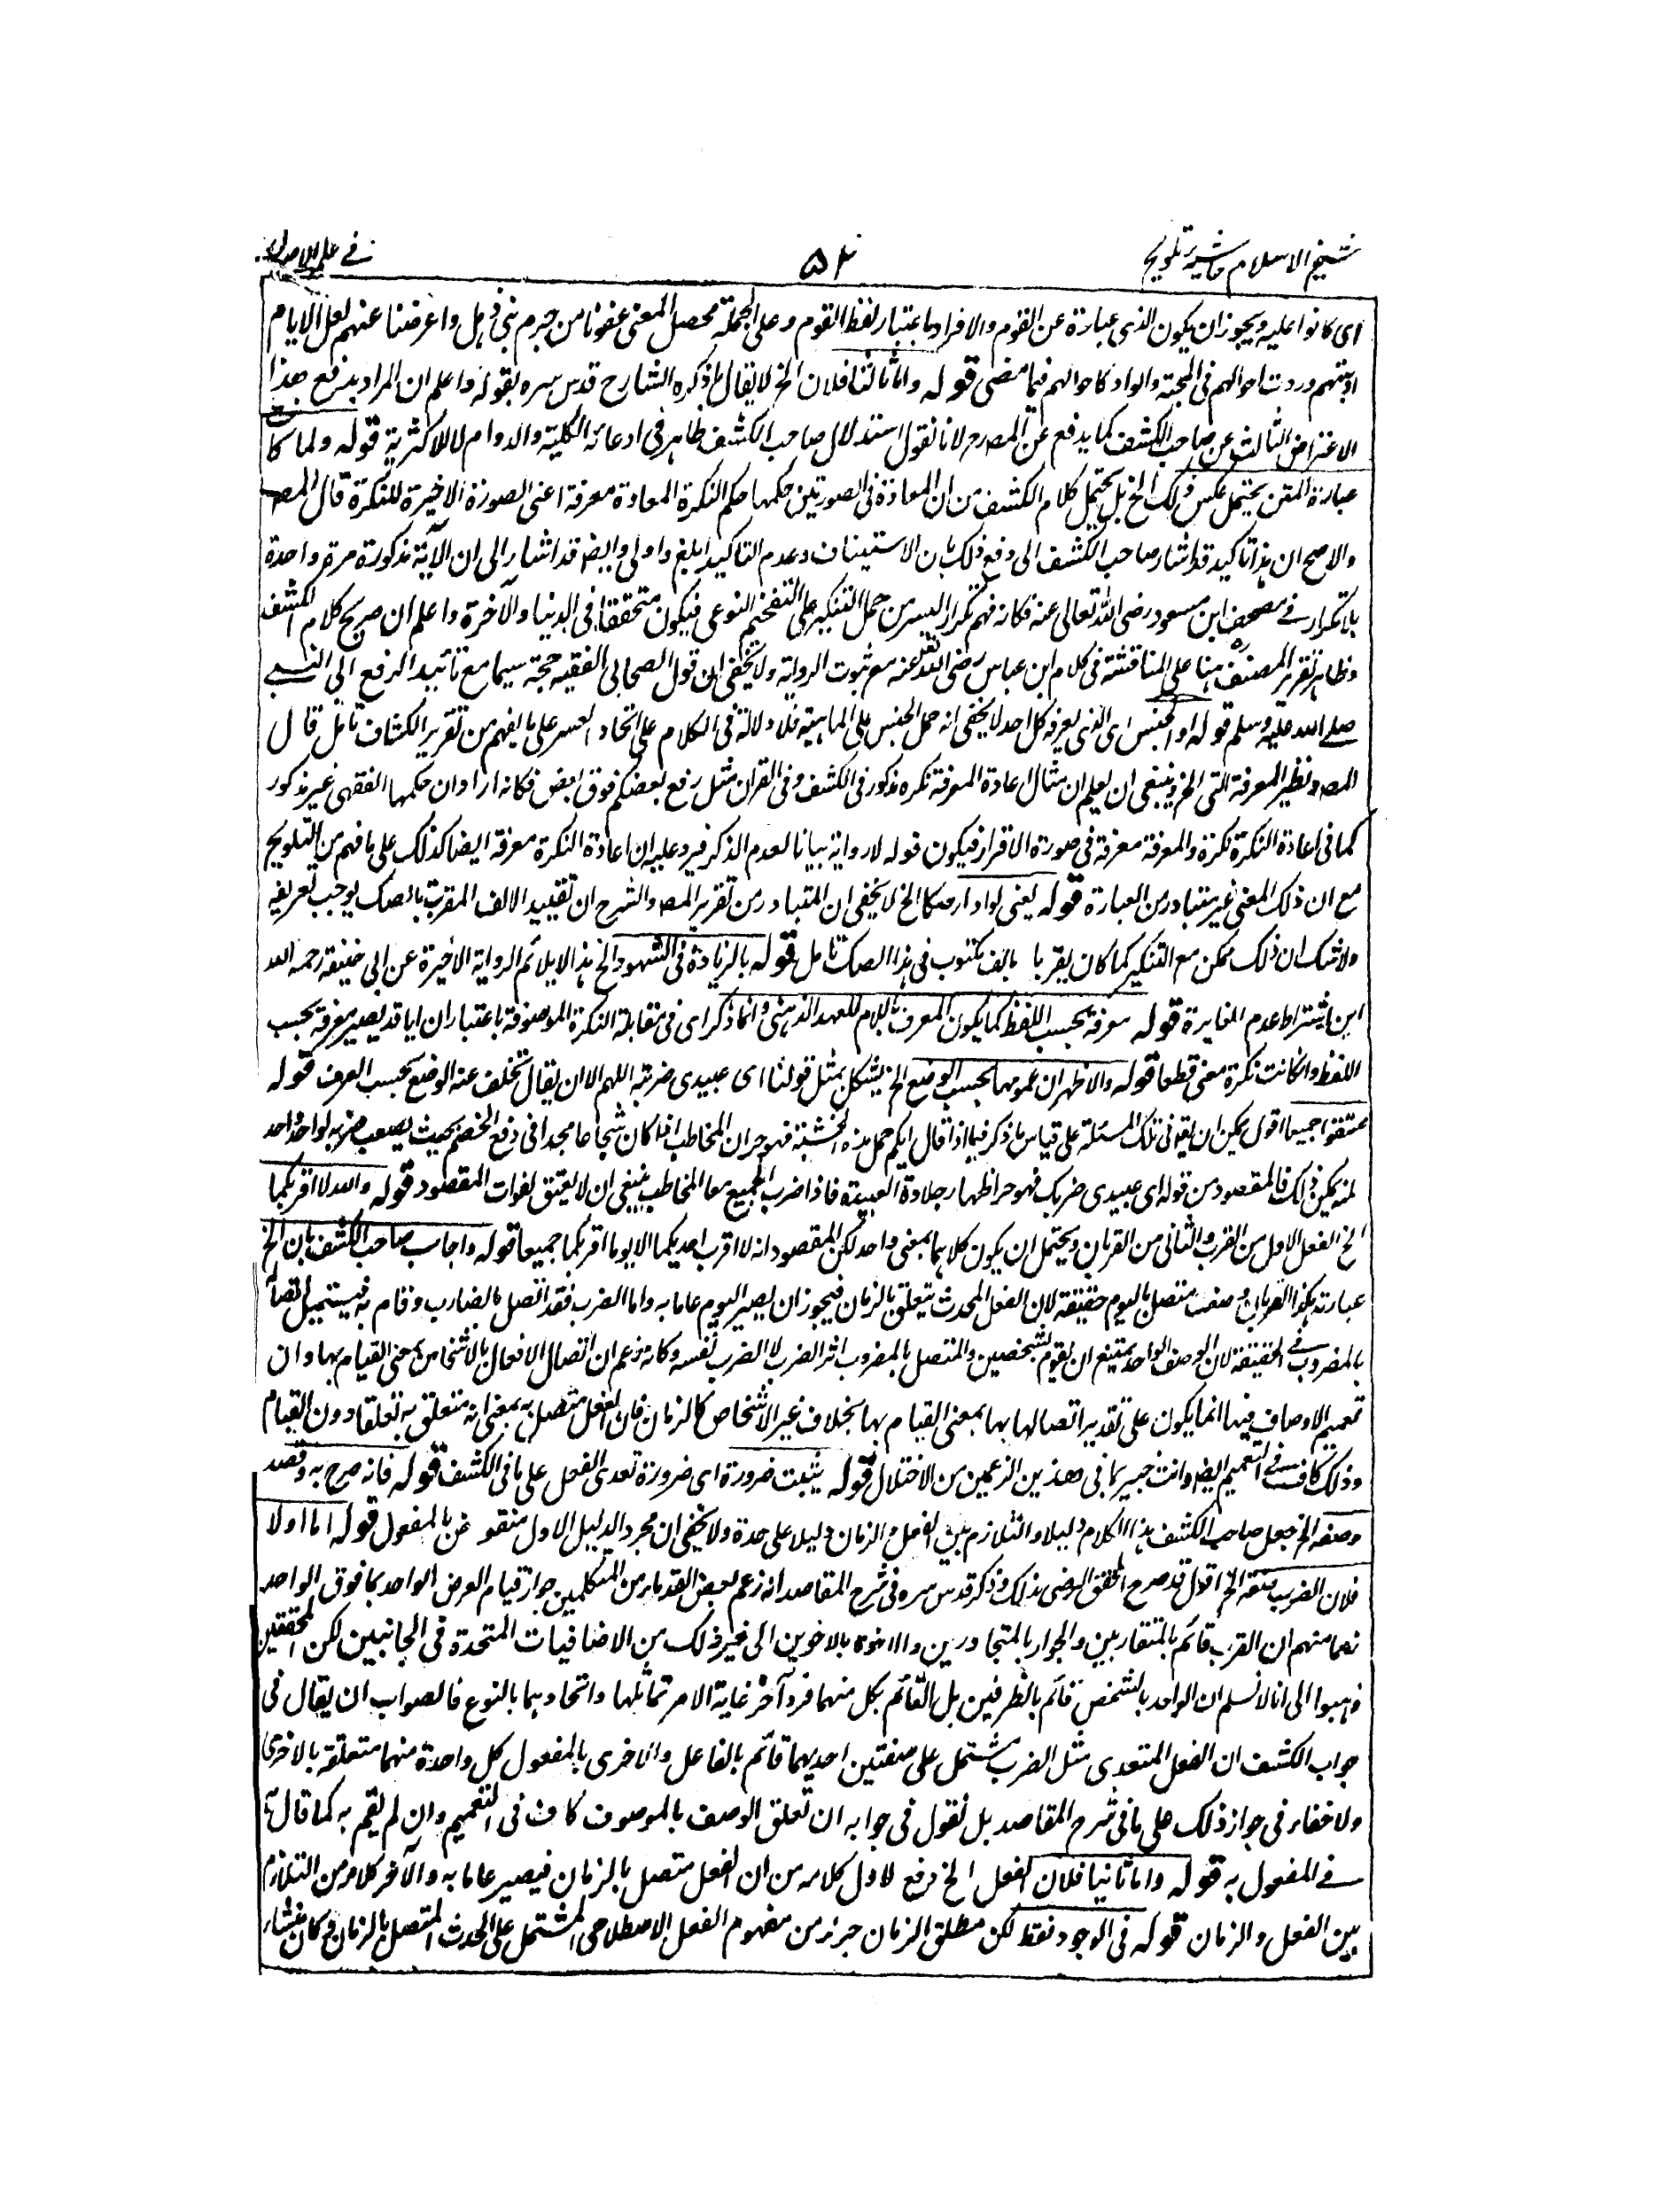 شیخ الاسلام حاشیہ تلویح
۵۴
فے علم الاصول
ای کانوا علیہ ویجوز ان یکون الذی عبارة عن القوم والافراد باعتبار لفظ القوم وعلی الجملة محصل المعنی عفونا من جرم بنی ذہل واعرضنا عنہم لعل الایام
وردت احوالہم فی المحبة والوداد کاحوالہم فیما مضی قولہ واما ثالثا فلان الخ لا یقال ما ذکرہ الشارح قدس سرہ بقولہ واعلم ان المراد یدفع ھذا
الاعتراض الثالث عن صاحب الکشف کما یدفع عن المصرح لانا نقول استدلال صاحب الکشف ظاہر فی ادعائہ الکلیة والدوام لا الاکثریة قولہ ولما کا
عبارة المتن یحتمل عکس ذلک الخ بل یحتمل کلام الکشف من ان المعادة فی الصورتین حکمہا حکم النکرة المعادة معرفة اعنی الصورة الاخیرة للنکرة قال المصـ
والاصح ان ہذا تاکید قد اشار صاحب الکشف الی دفع ذلک بان الاستیناف وعدم التاکید ابلغ واولی وایضا قد اشار الی ان الآیة مذکورة مرة واحدة
بلا تکرار فے مصحف ابن مسعود رضی اللہ تعالی عنہ فکانہ فہم تکرار الیسر من حمل التنکیر علی التفخیم النوعی فیکون متحققا فی الدنیا والآخرة واعلم ان صریح کلام الکشف
وظاہر تقریر المصنفؒ ہنا علی المناقشة فی کلام ابن عباس رضی اللہ عنہ مع ثبوت الروایة ولا یخفی ان قول الصحابی الفقیہ حجة سیما مع تائید الرفع الی النبـے
صلے اللہ علیہ وسلم قولہ او الجنس ای الذی یعرفہ کل احد لا یخفی انہ حمل الجنس علی الماہیة فلا دلالة فی الکلام علی اتحاد العسر علی ما یفہم من تقریر الکشاف تامل قال
المصـ ونظیر المعرفة التی الخ ینبغی ان یعلم ان مثال اعادة المعرفة نکرہ مذکور فی الکشف وفی القران مثل رفع بعضکم فوق بعض فکانہ اراد ان حکمہا الفقہی غیر مذکور
کما فی اعادة النکرة نکرة والمعرفة معرفة فی صورة الاقرار فیکون قولہ لا روایة بیانا لعدم الذکر فیرد علیہ ان اعادة النکرة معرفة ایضا کذلک علی ما فہم من التلویح
مع ان ذلک المعنی غیر متبادر من العبارة قولہ یعنی لو ادار صکا الخ لا یخفی ان المتبادر من تقریر المصـ والشرح ان تقیید الالف المقر بہ بالصک یوجب تعریفہ
ولا شک ان ذلک ممکن مع التنکیر کما کان یقر با بالف مکتوب فی ہذا الصک تامل قولہ بالزیادة فی الشہود الخ ہذا لا یلائم الروایة الاخیرة عن ابی حنیفة رحمہ اللہ
اشتراط عدم المغایرة قولہ معرفة بحسب اللفظ کما یکون المعرف باللام للعہد الذہنی وانما ذکر ای فی مقابلة النکرة الموصوفة باعتبار ان ایا قد یصیر معرفة بحسب
اللفظ وان کانت نکرة معنی قطعا قولہ والاظہر ان عمومہا بحسب الوضع الخ یشکل بمثل قولنا ای عبیدی ضربتہ اللہم الا ان یقال تخلف عنہ الوضع بحسب العرف قولہ
عتقوا جمیعا اقول یمکن ان یقع فی تلک المسئلة علی قیاس ما ذکر فیما اذا قال ایکم حمل ہذہ الخشبة فہو حر ان المخاطب اذا کان شجاعا مجدا فی دفع الخصم بحیث یصعب ضربہ لواحد واحد
ذلک فالمقصود من قولہ ای عبیدی ضربک فہو حر اظہار جلادة العبید فاذا ضرب الجمیع معا المخاطب ینبغی ان لا یعتق لفوات المقصود قولہ واللہ لا اقربکما
الخ الفعل الاول من القرب والثانی من القربان ویحتمل ان یکون کلاہما بمعنی واحد لکن المقصود انہ لا اقرب احدیکما الا یوما اقربکما جمیعا قولہ واجاب صاحب الکشف بان الخ
عبارتہ ہکذا القربان وصف متصل بالیوم حقیقة لان الفعل المحدث یتعلق بالزمان فیجوز ان یصیر الیوم عاما بہ واما الضرب فقد اتصل بالضارب وقام بہ فیستحیل اتصالہ
بالمضروب فے الحقیقة لان الوصف الواحد یمتنع ان یقوم بشخصین والمتصل بالمضروب اثر الضرب لا الضرب نفسہ وکانہ زعم ان اتصال الافعال بالاشخاص بمعنی القیام بہا وان
تعمیم الاوصاف فیہا انما یکون علی تقدیر اتصالہا بہا بمعنی القیام بہا بخلاف غیر الاشخاص کالزمان فان الفعل متصل بہ بمعنی انہ متعلق بہ تعلقا دون القیام
وذلک کاف فے التعمیم ایضا وانت خبیر بما فی ھذین الزعمین من الاختلال قولہ یثبت ضرورة ای ضرورة تعدی الفعل علی ما فی الکشف قولہ فانہ صرح بہ وقصد
وصفہ الخ جعل صاحب الکشف ہذا الکلام دلیلا والتلازم بین الفعل والزمان دلیلا علی حدة ولا یخفی ان مجرد الدلیل الاول منقوض بالمفعول قولہ اما اولا
فلان الضرب صفة الخ اقول قد صرح المحقق الرضی بذلک وذکر قدس سرہ فی شرح المقاصد انہ زعم بعض القدماء من المتکلمین جواز قیام العرض الواحد بما فوق الواحد
زعما منہم ان القرب قائم بالمتقاربین والجوار بالمتجاورین والاخوة بالاخوین الی غیر ذلک من الاضافیات المتحدة فی الجانبین لکن المحققین
ذہبوا الی انا لا نسلم ان الواحد بالشخص قائم بالطرفین بل القائم بکل منہما فرد آخر غایة الامر تماثلہا واتحادہما بالنوع فالصواب ان یقال فی
جواب الکشف ان الفعل المتعدی مثل الضرب مشتمل علی صفتین احدیہما قائم بالفاعل والاخری بالمفعول کل واحدة منہما متعلقة بالاخری
ولا خفاء فی جواز ذلک علی ما فی شرح المقاصد بل نقول فی جوابہ ان تعلق الوصف بالموصوف کاف فی التعمیم وان لم یقم بہ کما قالہ
فے المفعول بہ قولہ واما ثانیا فلان الفعل الخ دفع لاول کلامہ من ان الفعل متصل بالزمان فیصیر عاما بہ والآخر کلامہ من التلازم
بین الفعل والزمان قولہ فی الوجود فقط لکن مطلق الزمان جزء من مفہوم الفعل الاصطلاحی المشتمل علی الحدث المتصل بالزمان وکان منشاء